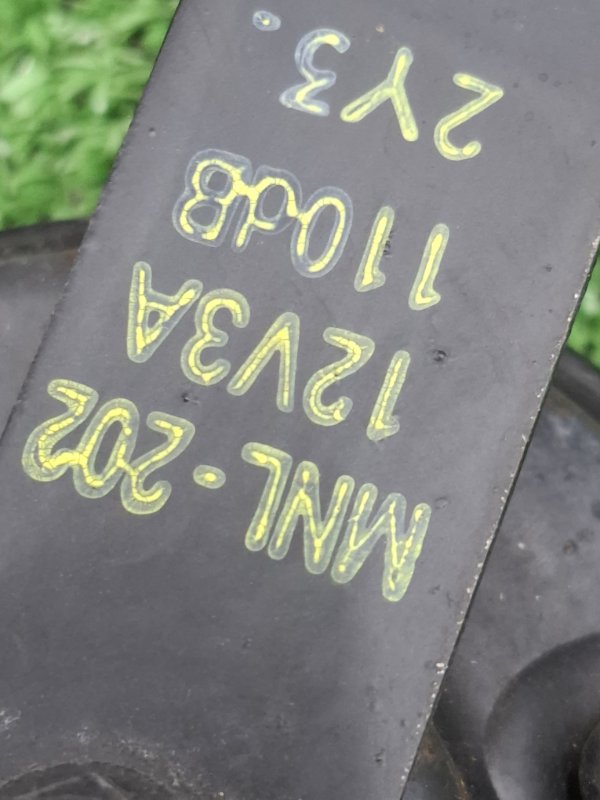 MNL-202
12V3A
110dB
2Y3.